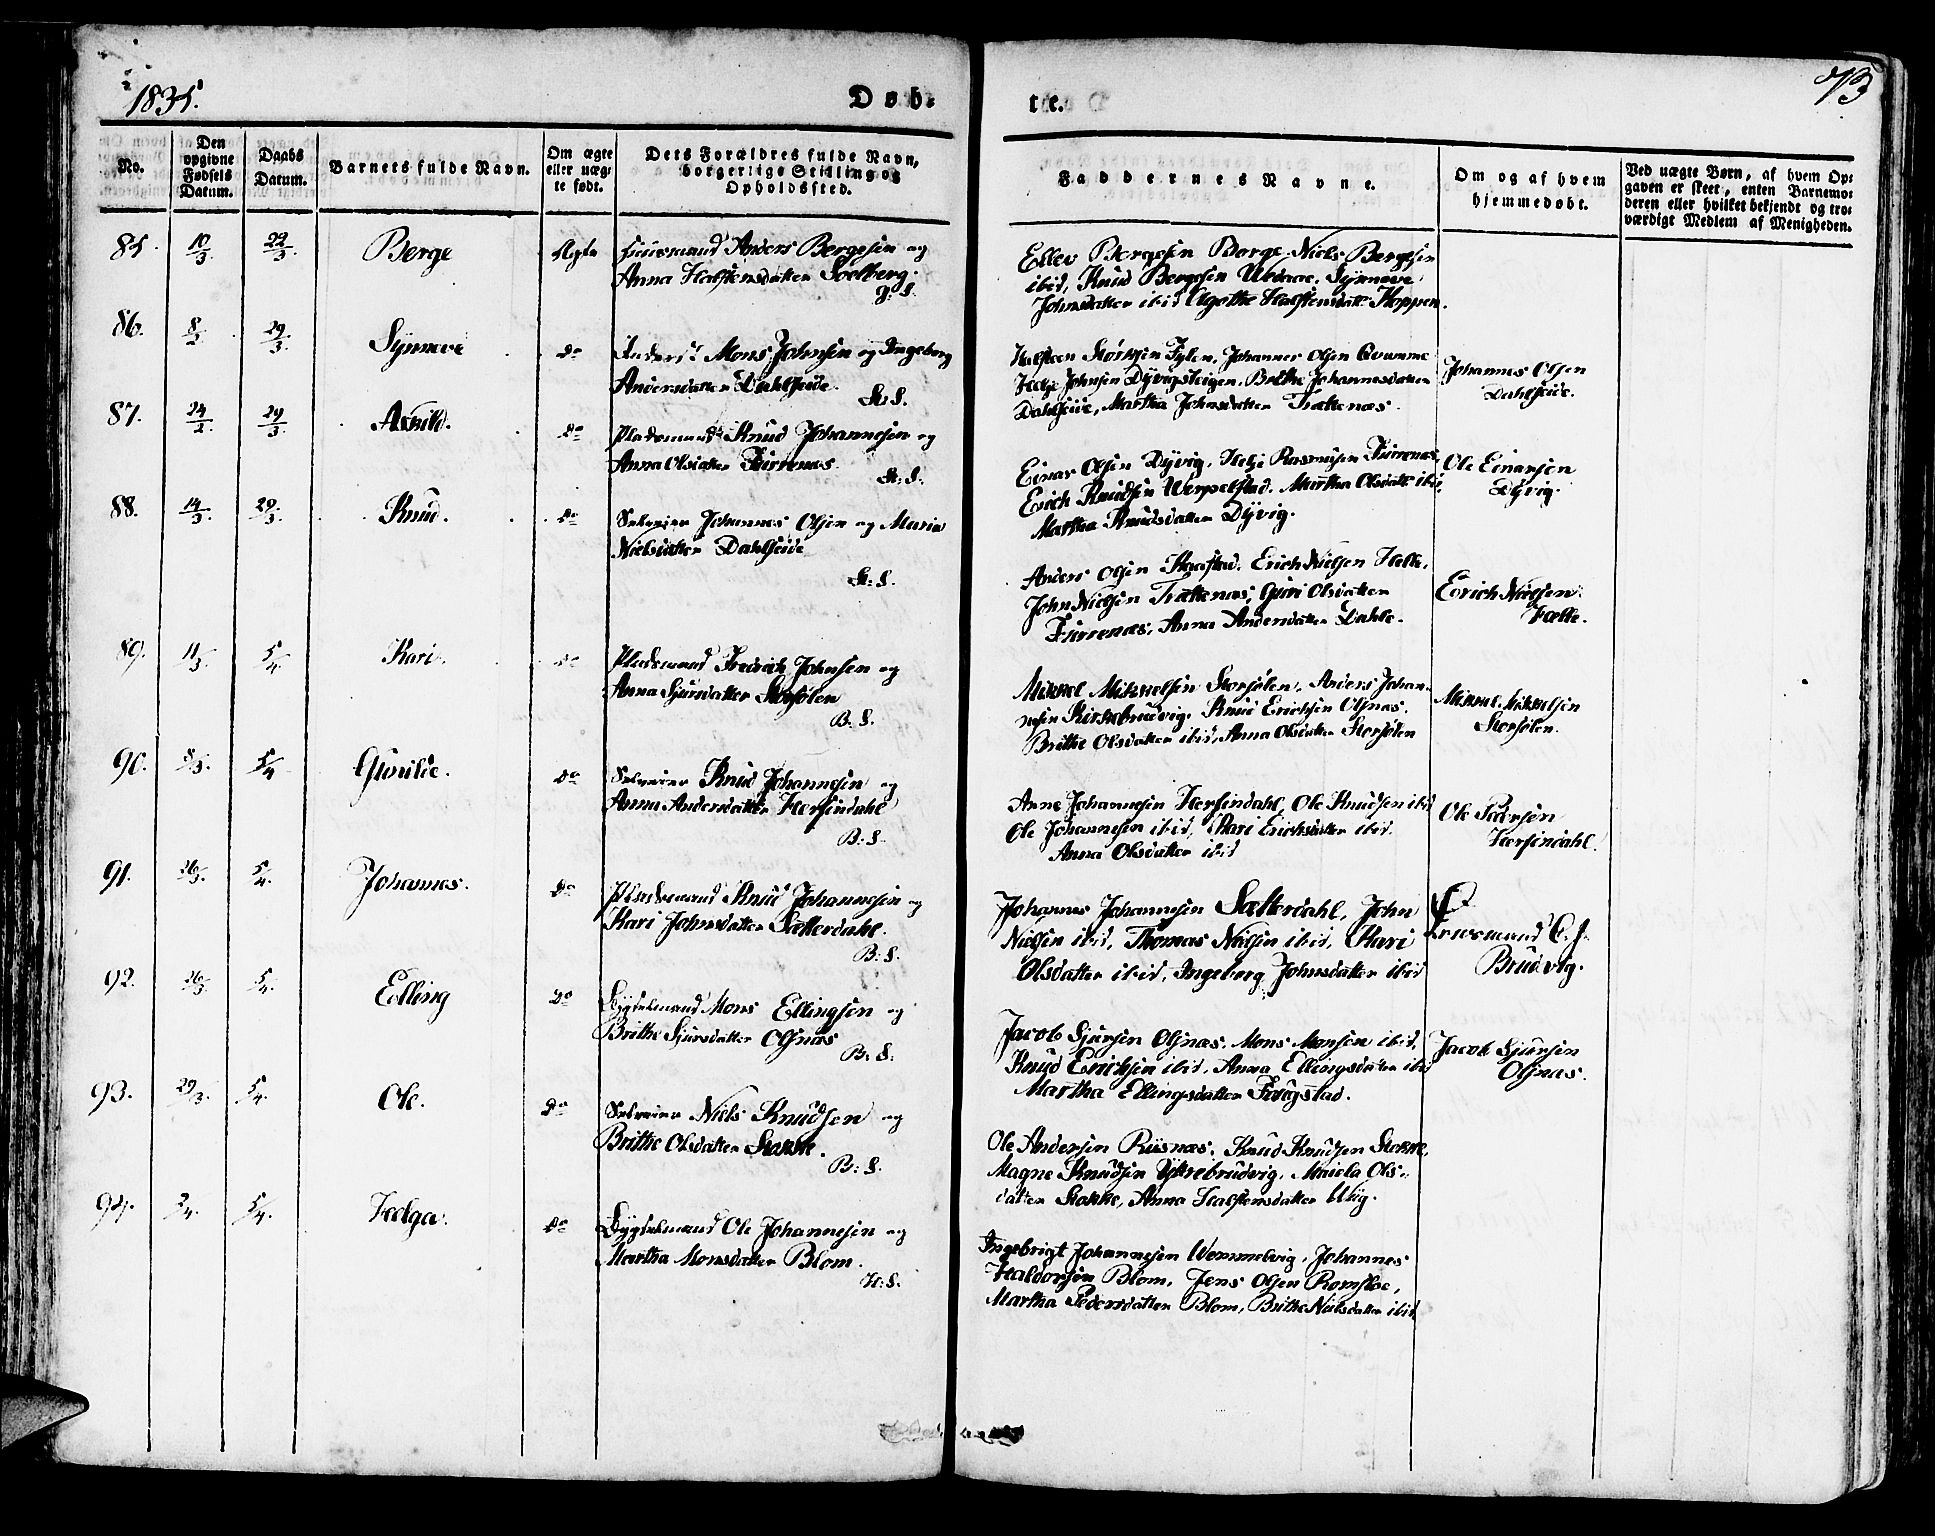 1835.
Døb-
te.
73
No.
Den
opgivne
Fødsels
Datum.
Daabs
Datum.
Barnets fulde Navn.
Om ægte
eller uæg-
te født.
Dets Forældres fulde Navn,
borgerlige Stilling og
Opholdsfted.
Faddernes Navne.
Om og af hvem
hjemmedøbt.
Ved uægte Børn, af hvem Op-
gaven er skeet, enten Barnemo-
deren eller hvilket bekjendt og tro-
værdigt Medlem af Menigheden.
85. 10/3 22/3 Berge Ægte Huusmand Anders Bergesen og
Anna Halstensdatter Soelberg.
Elles Bergesen Berge, Niels Bergesen
ibid, Knud Bergesen Ubdaae, Synneve
Johnsdatter ibid Agothe Halstensdatt: Hoppen.
86. 8/2 29/3 Synneve Do Inders: Mons Johnsen og Ingeborg
Andersdatter Dahlseide.
K: S.
Halsteen Størksen Fylen, Johannes Olsen Qvamme
Helje Johnsen Dyvigsteigen, Brithe Johannesdatter
Dahlseide, Martha Johnsdatter Trættenæs.
Johannes Olsen
Dahlseide.
87. 24/2 29/3 Arnild. Do Pladsmand Knud Johannesen og
Anna Olsdatter Furrenæs
K: S.
Einar Olsen Dyvig, Helje Rasmusen Furrenæs,
Erich Knudsen Wempelstad, Martha Olsdatt: ibid,
Martha Knudsdatter Dyvig.
Ole Einarsen
Dyvig.
88. 14/3 29/3 Knud. Do Selveier Johannes Olsen og Maria
Nielsdatter Dahlseide
K: S.
Anders Olsen Skaftad, Erich Nielsen Helle,
John Nielsen Trættenæs, Guri Olsdatter
Furrenæs, Anna Andersdatter Dahle.
Erich Nielsen
Hælle.
89. 11/3 5/4 Kari. Do Pladsmand Fredrich Johnsen og
Anna Sjursdatter Storsølen
B: S.
Mikkel Mikkelsen Storsølen, Anders Johan-
nesen Kirkebrudvig, Knud Erichsen Olsnæs,
Brithe Olsdatter ibid, Anna Olsdatter Storsølen
Mikkel Mikkelsen
Storsølen.
90. 8/3 5/4 Gurilde. Do Selveier Knud Johannesen og
Anna Andersdatter Hersindahl
B: S.
Arne Johannesen Hersindahl, Ole Knudsen ibid
Ole Johannesen ibid, Kari Erichsdatter ibid.
Anna Olsdatter ibid
Ole Pedersen
Hersindahl.
91. 26/3 5/4 Johannes. Do Pladsmand Knud Johannesen og
Kari Johnsdatter Sætterdahl.
B: S.
Johannes Johannesen Sætterdahl, John
Nielsen ibid, Thomas Nielsen ibid, Kari
Olsdatter ibid, Ingeborg Johnsdatter ibid
Brudvig.
92. 26/3 5/4 Elling Do Bygselmand Mons Ellingsen og
Brithe Sjursdatter Olsnæs
B: S.
Jacob Sjursen Olsnæs, Mons Monsen ibid,
Knud Erichsen ibid, Anna Ellingsdatter ibid
Martha Ellingsdatter Fugstad.
Jacob Sjursen
Olsnæs.
93. 29/3 5/4 Ole. Do Selveier Niels Knudsen og
Brithe Olsdatter Stokke.
B: S.
Ole Andersen Riisnæs, Knud Knudsen Stokke,
Magne Knudsen Yttrebrudvig, Maiela Ols-
datter Stokke, Anna Halstensdatter Wiig.
94. 3/4. 5/4. Helga. Do Bygselmand Ole Johannesen og
Martha Monsdatter Blom.
H: S.
Ingebrigt Johannesen Wemmelvig, Johannes
Haldorsen Blom, Jens Olsen Romsloe,
Martha Pedersdatter Blom, Brithe Nielsdatter ibid